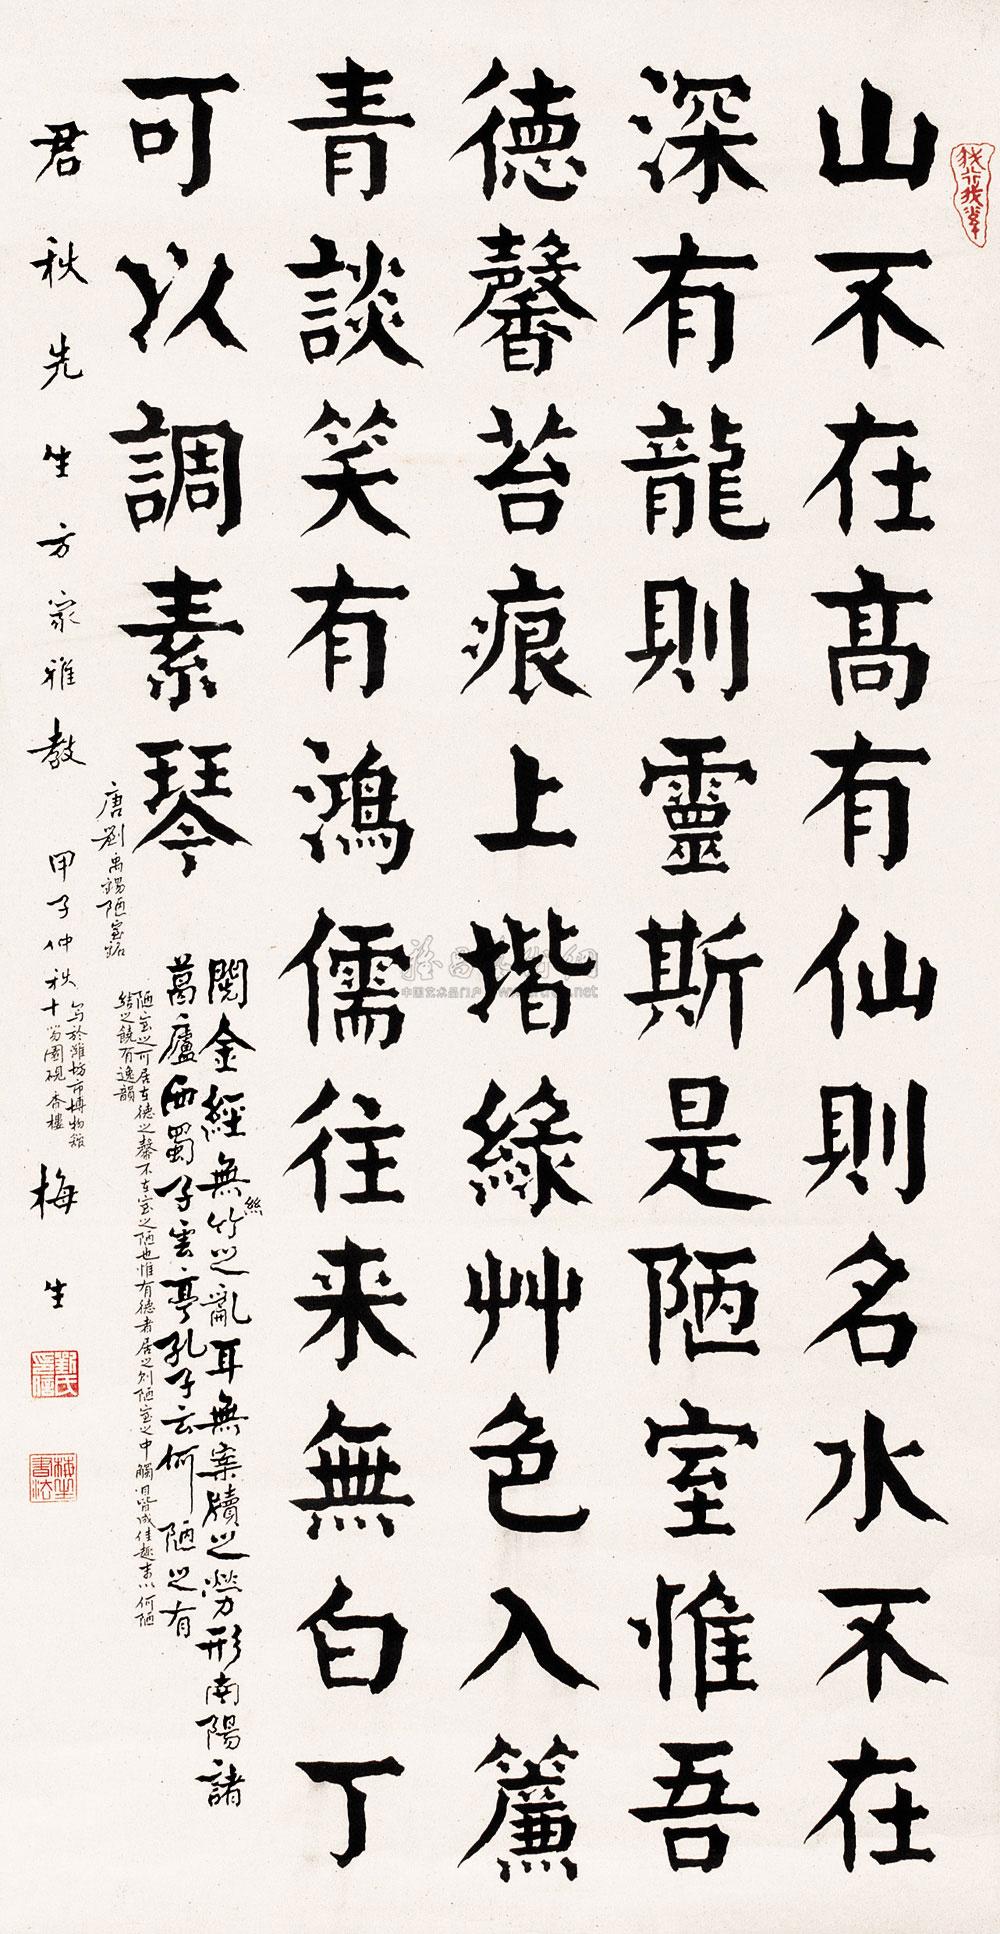 山不在高有仙則名水不在
深有龍則靈斯是陋室惟吾
德馨苔痕上堦綠艸色入簾
青談笑有鴻儒往来無白丁
可以調素琴
閱金經無竹之亂耳無案牘之勞形南陽諸
絲
葛廬西蜀子雲亭孔子云何陋之有
唐劉禹錫陋室銘
陋室之可居在德之馨不在室之陋也惟有德者居之則陋室之中觸目皆成佳趣末以何陋
結之饒有逸韻
君秋先生方家雅教
甲子仲秋
寫於濰坊市博物館
十笏園硯香樓
梅生
劉氏
梅生書法
中国艺术品门户